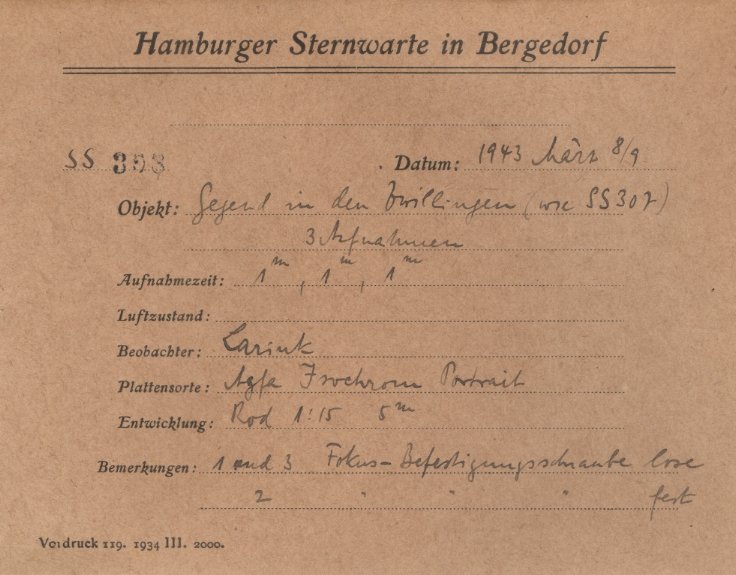 Hamburger Sternwarte in Bergedorf
SS 358 Datum: 1943 März 8/9
Objekt: Gegend in den Zwillingen (wie SS 307)
3 Aufnahmen
Aufnahmezeit: 1m, 1m, 1m
Luftzustand:
Beobachter: Larink
Plattensorte: Agfa Isochrom Portrait
Entwicklung: Rod 1:15 5m
Bemerkungen: 1 und 3 Fokus-Befestigungsschraube lose
2 " " " fest
Vordruck 119. 1934 III. 2000.